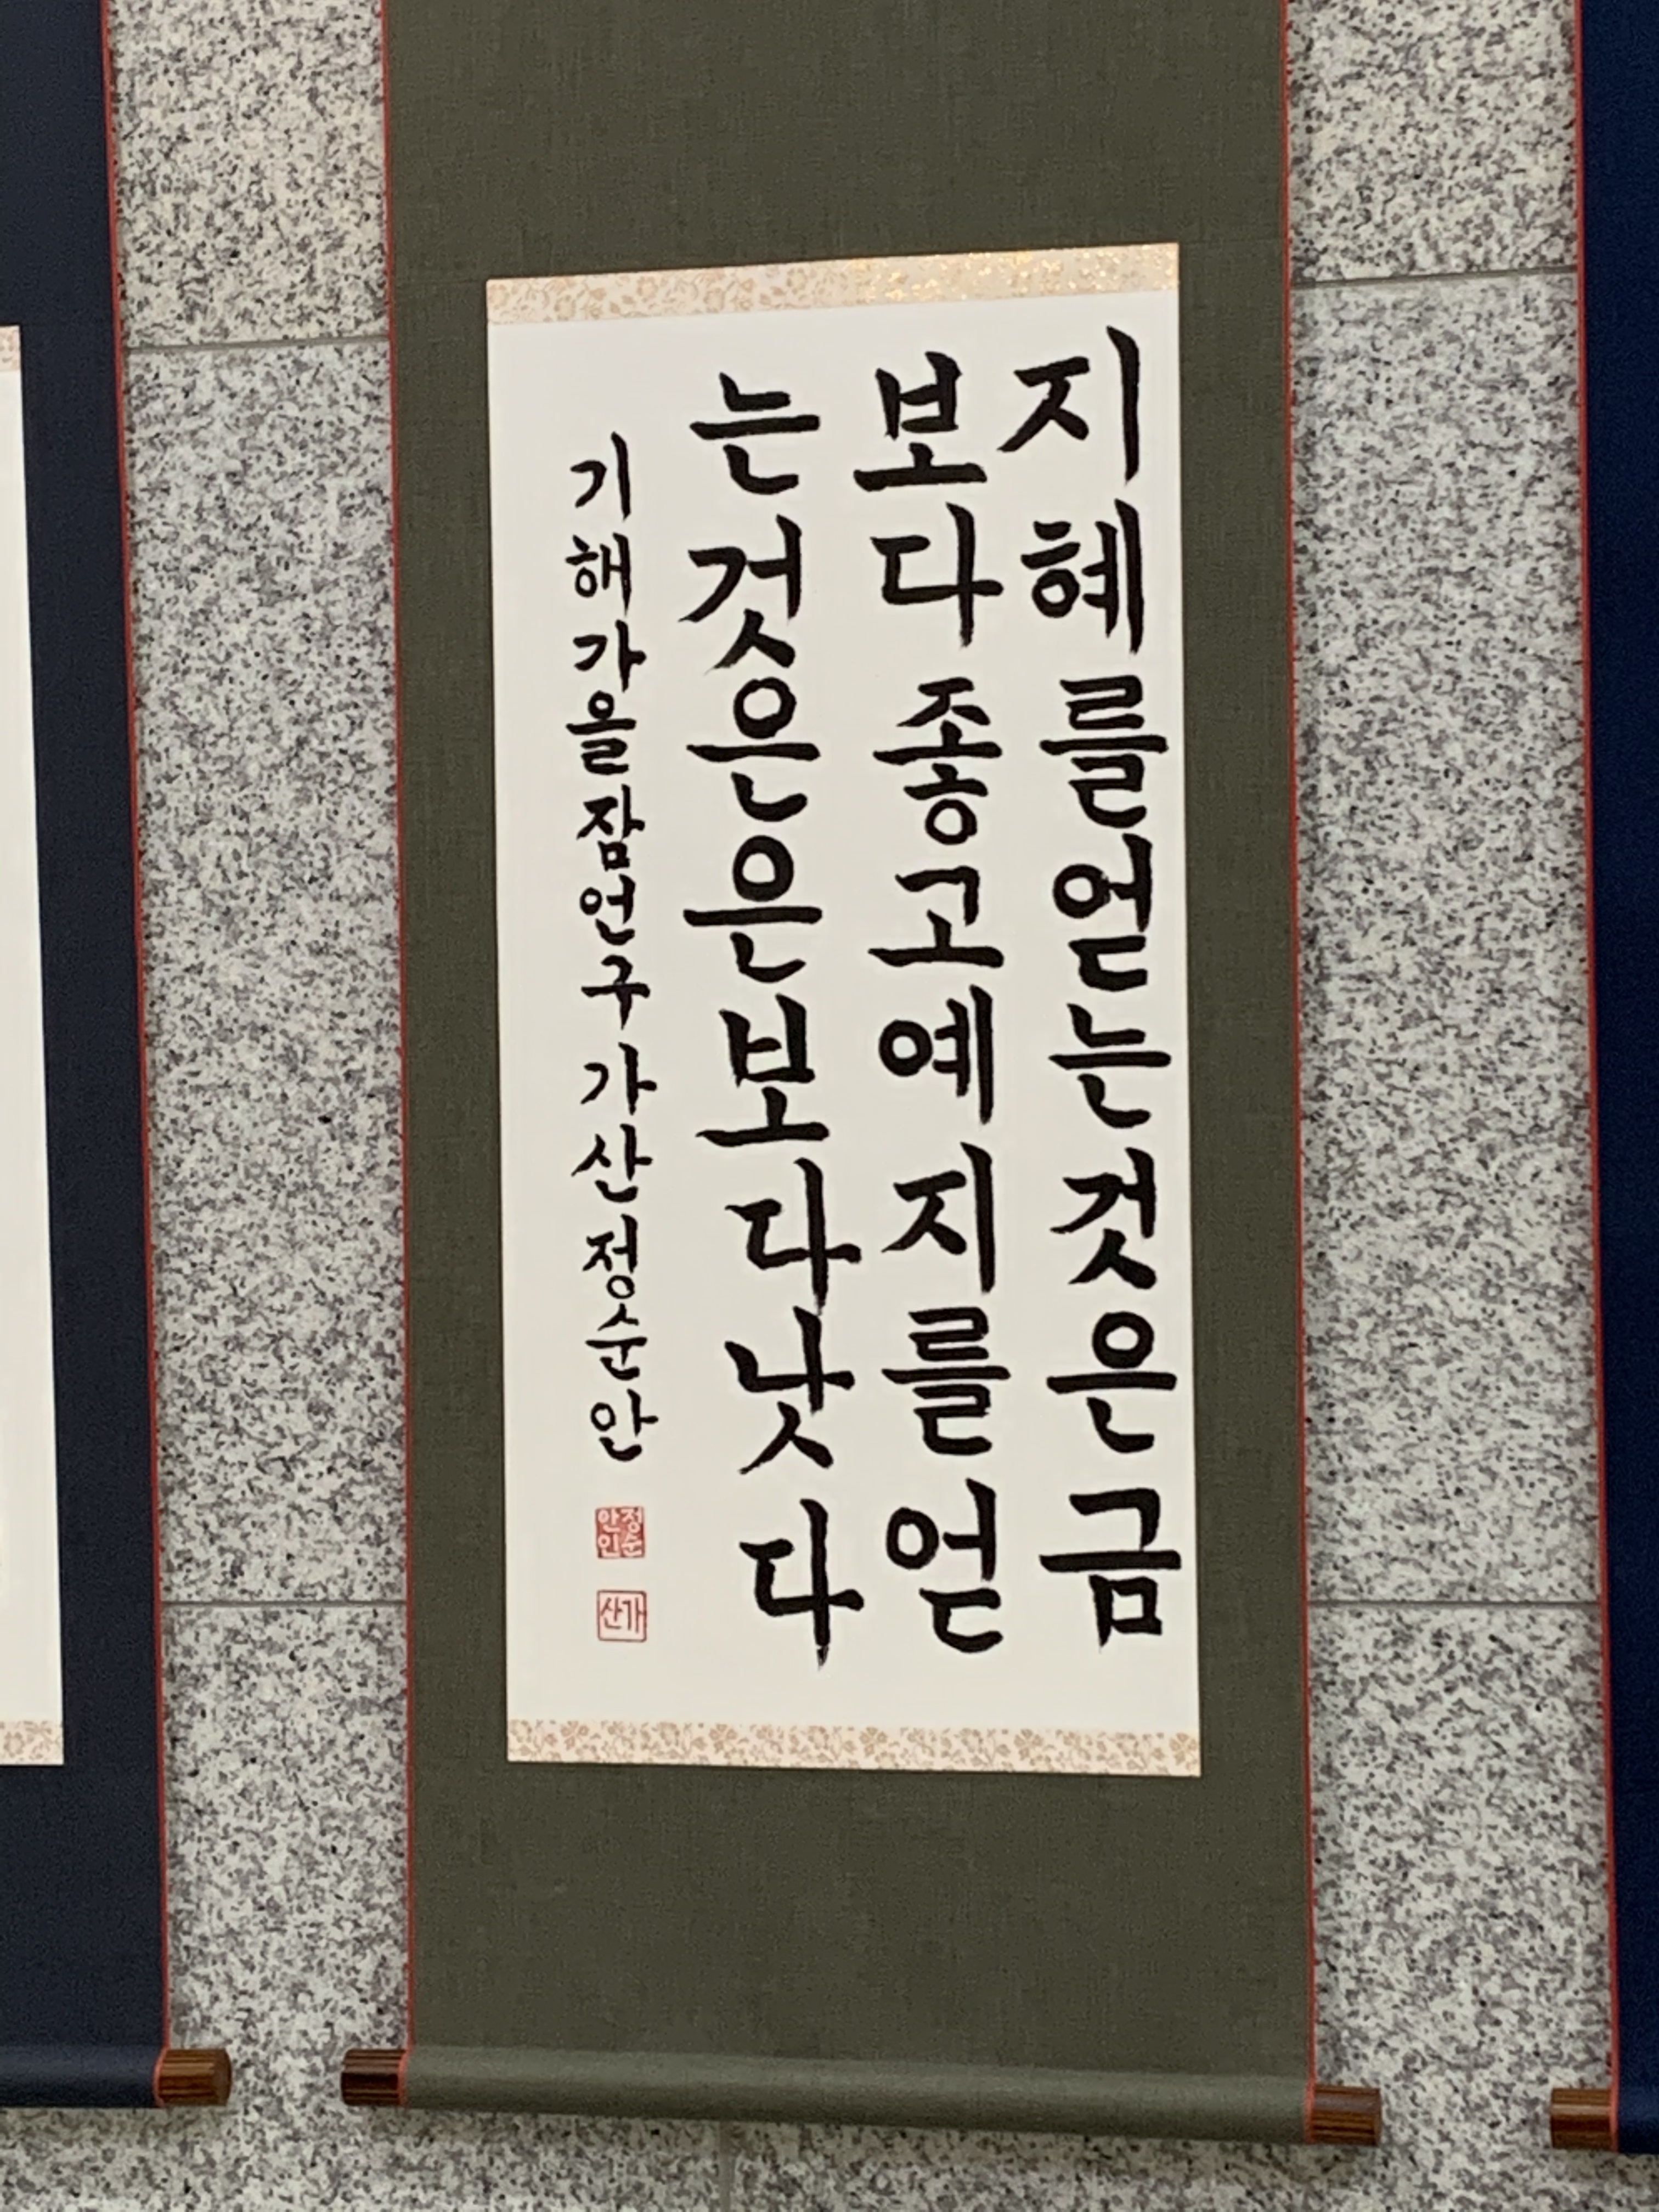 지혜를얻는것은금
보다좋고예지를얻
는것은은보다낫다
기해가을잠언구 가산정순안
정순
안인
가산